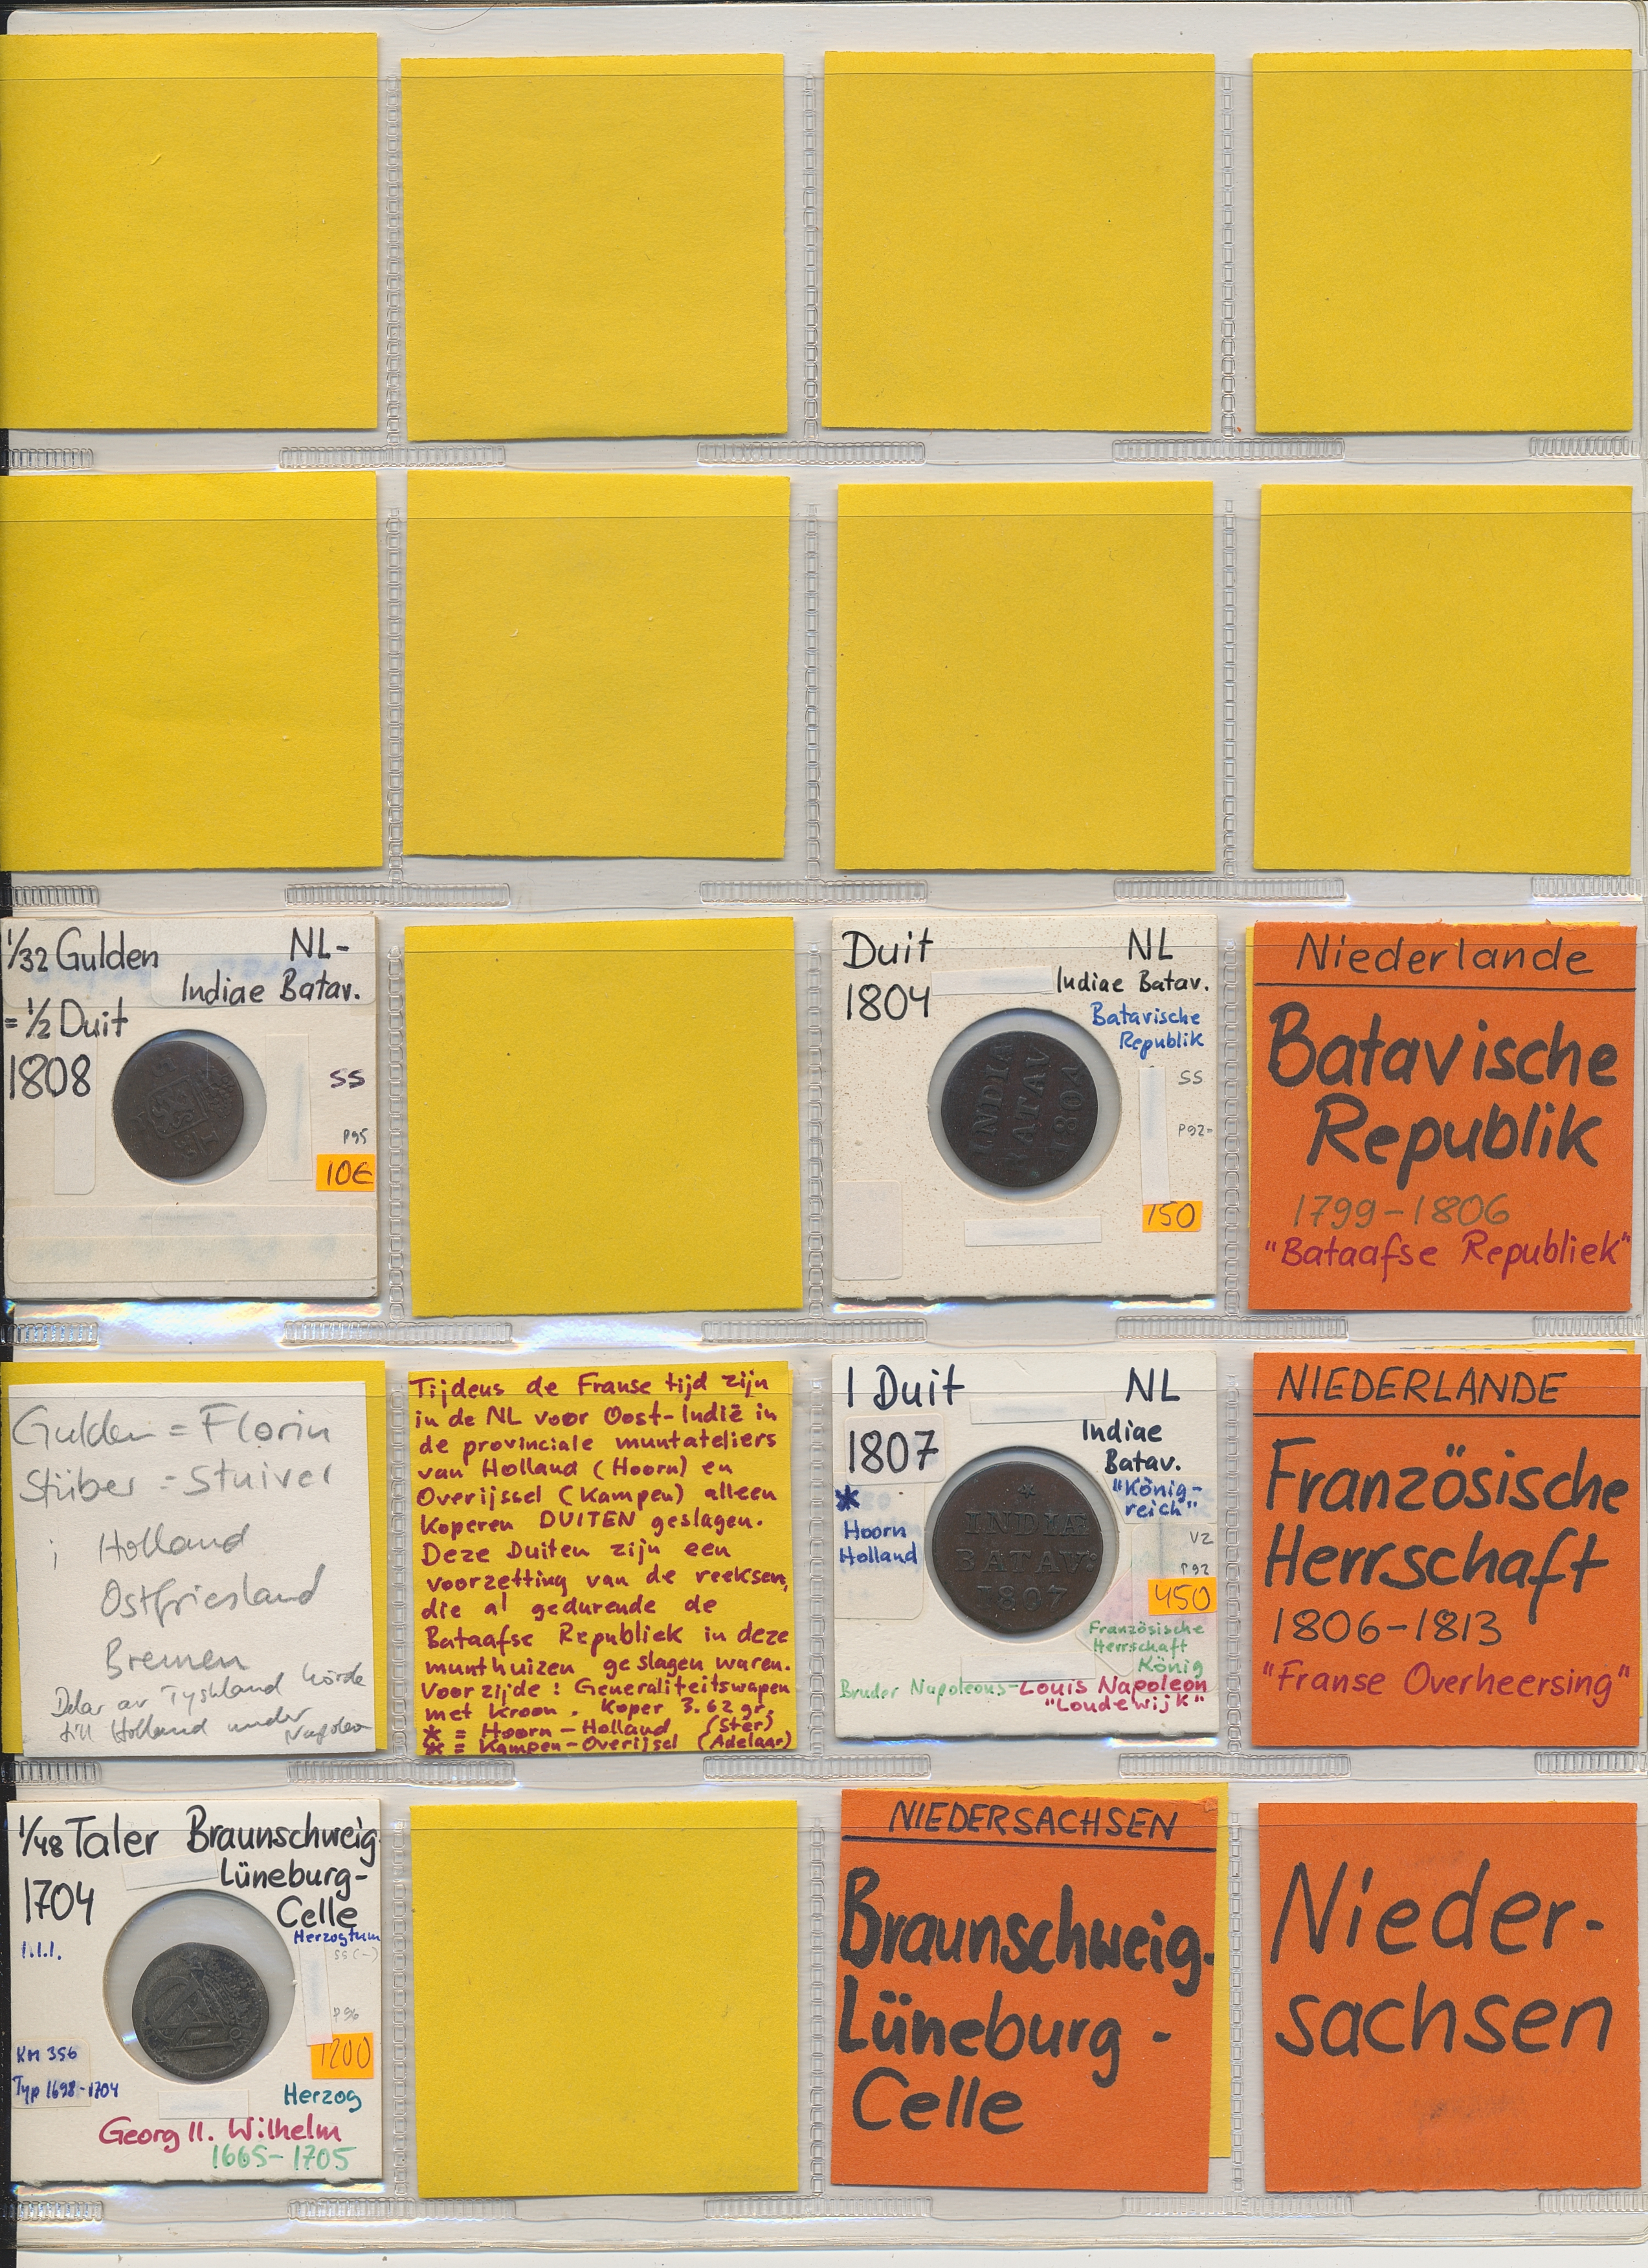 1/32 Gulden NL-
Indiae Batav.
= 1/2 Duit
1808
SS
P95
10€
Duit NL
1804 Indiae Batav.
Batavische
Republik
SS
P92-
150
INDIÆ
BATAV
1804
Niederlande
Batavische
Republik
1799-1806
"Bataafse Republiek"
Gulden = Florin
Stüber = Stuiver
i Holland
Ostfriesland
Bremen
Delar av Tyskland hörde
till Holland under
Napoleon
Tijdens de Franse tijd zijn
in de NL voor Oost-Indië in
de provinciale muntateliers
van Holland (Hoorn) en
Overijssel (Kampen) alleen
Koperen DUITEN geslagen.
Deze Duiten zijn een
voorzetting van de reeksen,
die al gedurende de
Bataafse Republiek in deze
munthuizen geslagen waren.
Voorzijde: Generaliteitswapen
met Kroon. Koper 3.62 gr.
* = Hoorn-Holland (Ster)
* = Kampen-Overijsel (Adelaar)
1 Duit NL
1807 Indiae
Batav.
"König-
reich"
*
Hoorn
Holland
VZ
P92
450
*
INDIÆ
BATAV:
1807
Französische
Herrschaft
König
Bruder Napoleons-Louis Napoleon
"Loudewijk"
NIEDERLANDE
Französische
Herrschaft
1806-1813
"Franse Overheersing"
1/48 Taler Braunschweig
Lüneburg-
1704 Celle
Herzogtum
I.I.I.
SS(-)
P96
1200
KM 356
Typ 1698-1704
Herzog
Georg II. Wilhelm
1665-1705
NIEDERSACHSEN
Braunschweig-
Lüneburg-
Celle
Nieder-
sachsen